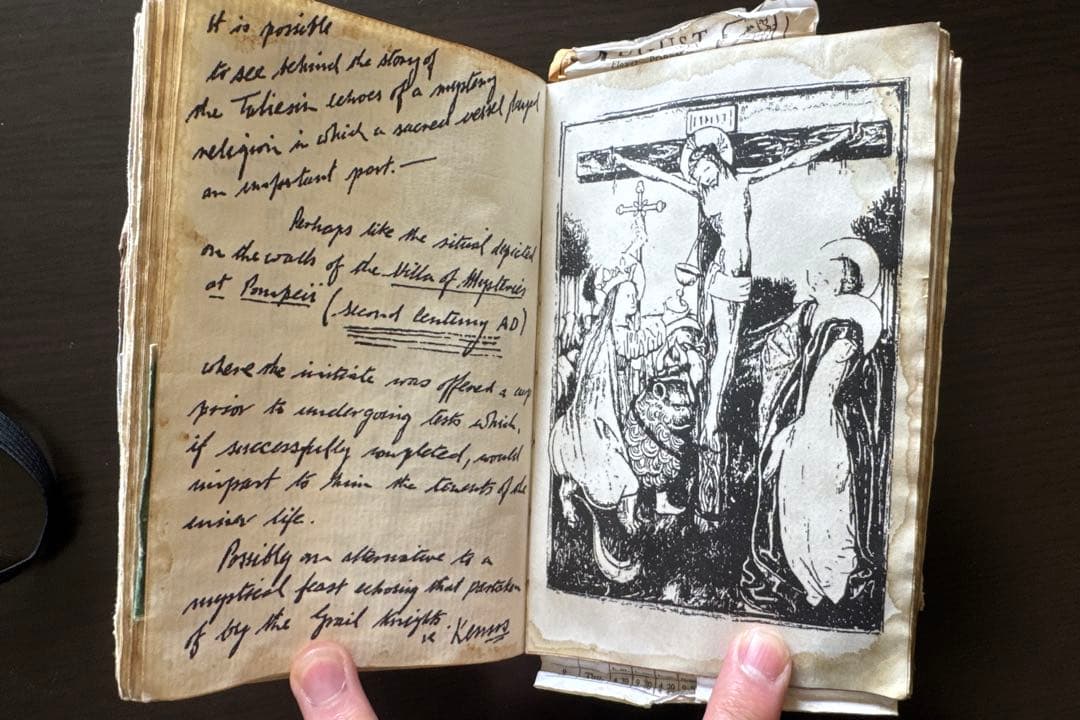 It is possible
to see behind the story of
the Taliesin echoes of a mystery
religion in which a sacred vessel played
an important part.—
Perhaps like the ritual depicted
on the walls of the Villa of Mysteries
at Pompeii (second century AD)
where the initiate was offered a cup
prior to undergoing tests which,
if successfully completed, would
impart to him the tenents of the
inner life.
Possibly an alternative to a
mystical feast echoing that partaken
of by the Grail Knights
ie Kernos